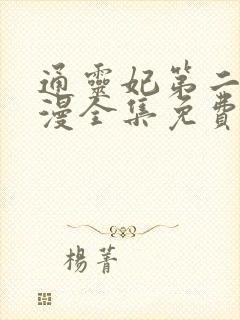 通靈妃第二
漫全集免費
楊菁